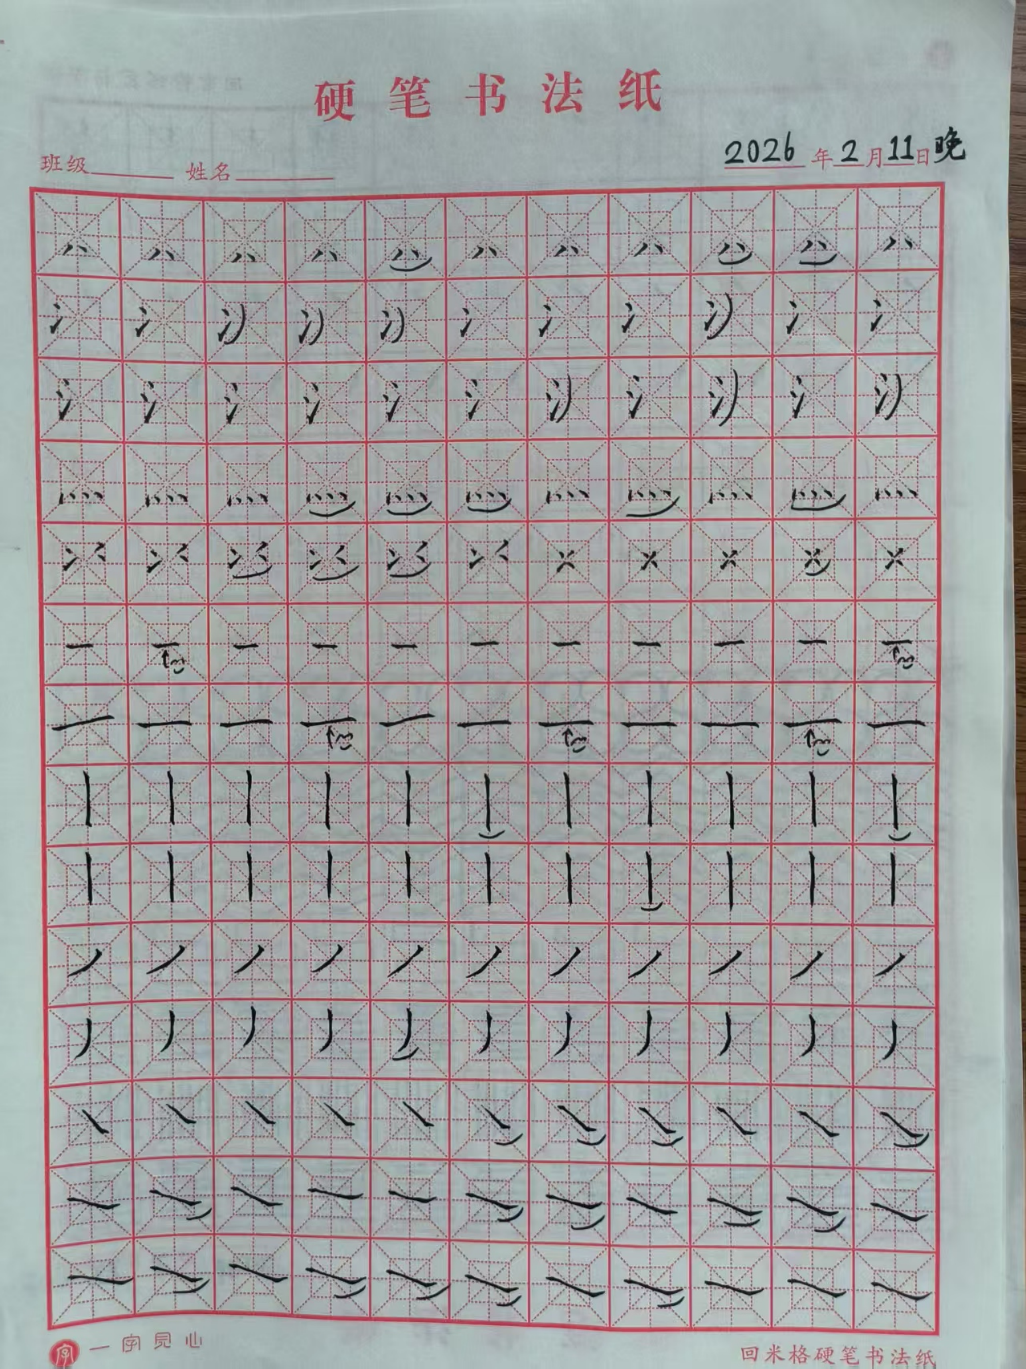 硬笔书法纸
班级 姓名 2026年2月11日晚
一字见心 回米格硬笔书法纸